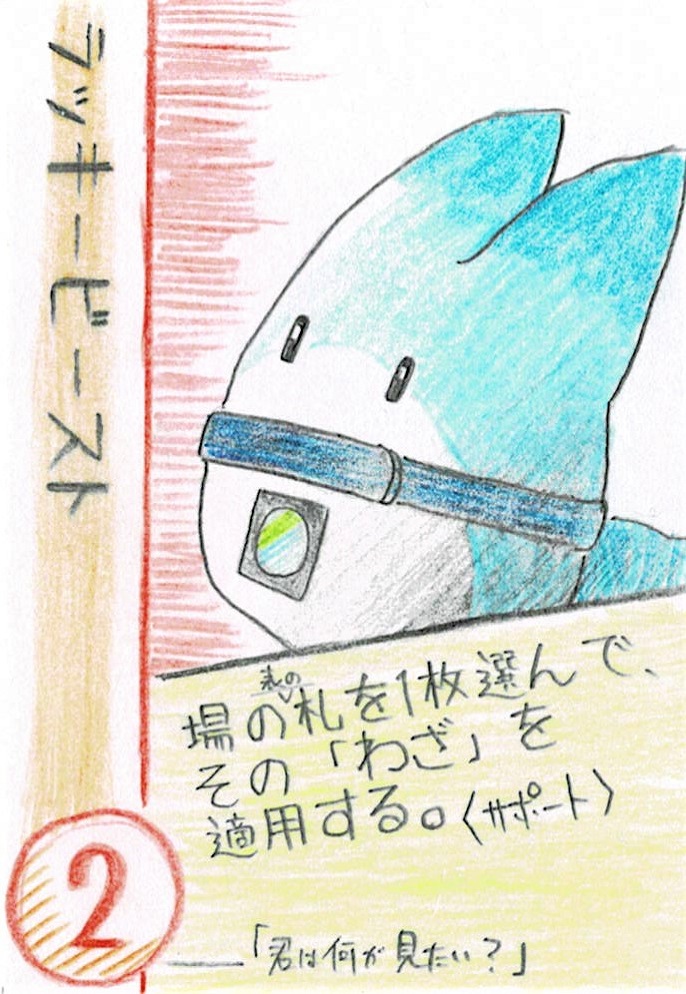 ラッキービースト
場の札を1枚選んで、
その「わざ」を
適用する。〈サポート〉
2
「君は何が見たい？」